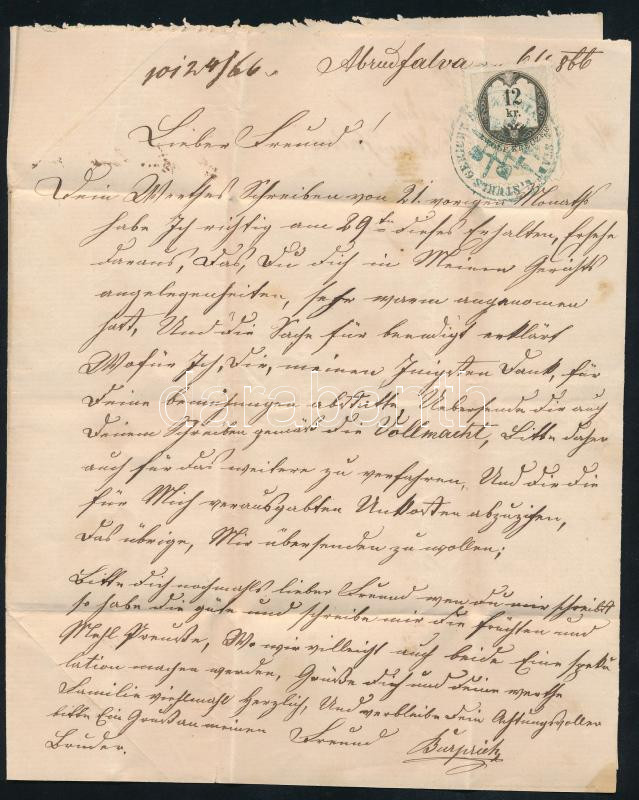 10124/66.
Abrudfalva 866
12
kr.
Lieber Freund!
Dein Werthes Schreiben von 21. vorigen Monaths
habe Ich richtig am 29ten dieses Erhalten, Ersehe
daraus, Das, Du dich in Meinen Gerichts
angelegenheiten, sehr warm angenomen
hatt, Und die Sache für beendigt erklärt
Wofür Ich, Dir, meinen Inigsten Dank, für
Deine bemühungen abstatte, Uebersende Dir auch
Deinem Schreiben gemäß die Vollmacht, Bitte daher
auch für das weitere zu verfahren, Und dir die
für Mich verausgabten Unkosten abzuzihen,
das übrige, Mir übersenden zu wollen;
Bitte dich nochmahls lieber Freund wen du mir schreibst
so habe die güte und schreibe mir die früchten und
Mehl Preuße, Wo wir villeicht auch beide Eine speku
lation machen werden, Grüße dich und deine werthe
Familie viehlmahl Herzlich, Und verbleibe dein Achtungsvoller
bitte Ein Gruß an meinen Freund
Bruder.
darabanth